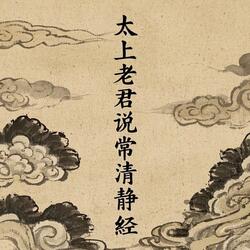 太上老君说常清静经